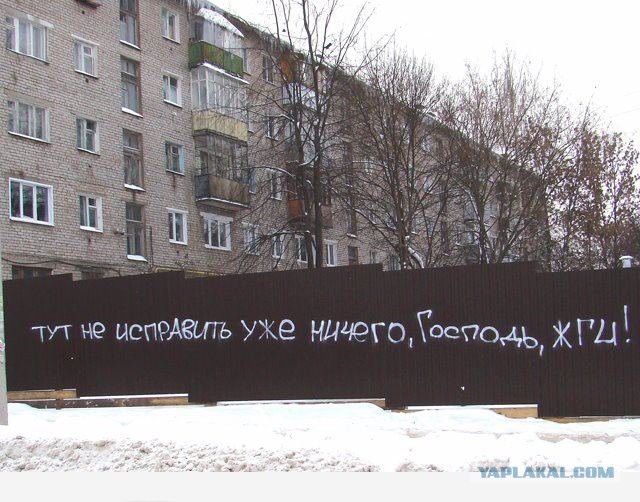 тут не исправить уже ничего, Господь, жги!
YAPLAKAL.COM